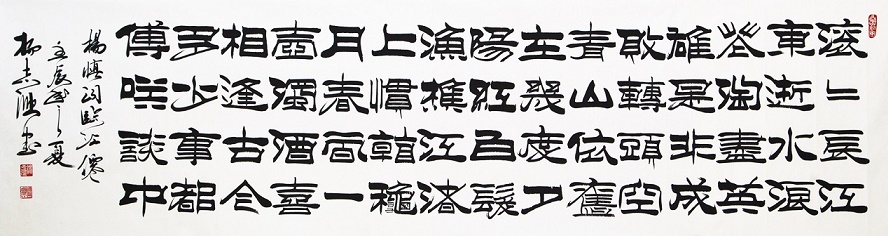 滚〻長江
東逝水浪
花淘盡英
雄是非成
敗轉頭空
青山依舊
在幾度夕
陽紅白髮
漁樵江渚
上慣看龝
月春風一
壺濁酒喜
相逢古今
多少事都
傳咲談中
楊慎詞臨江僊
壬辰年之夏
柳志書